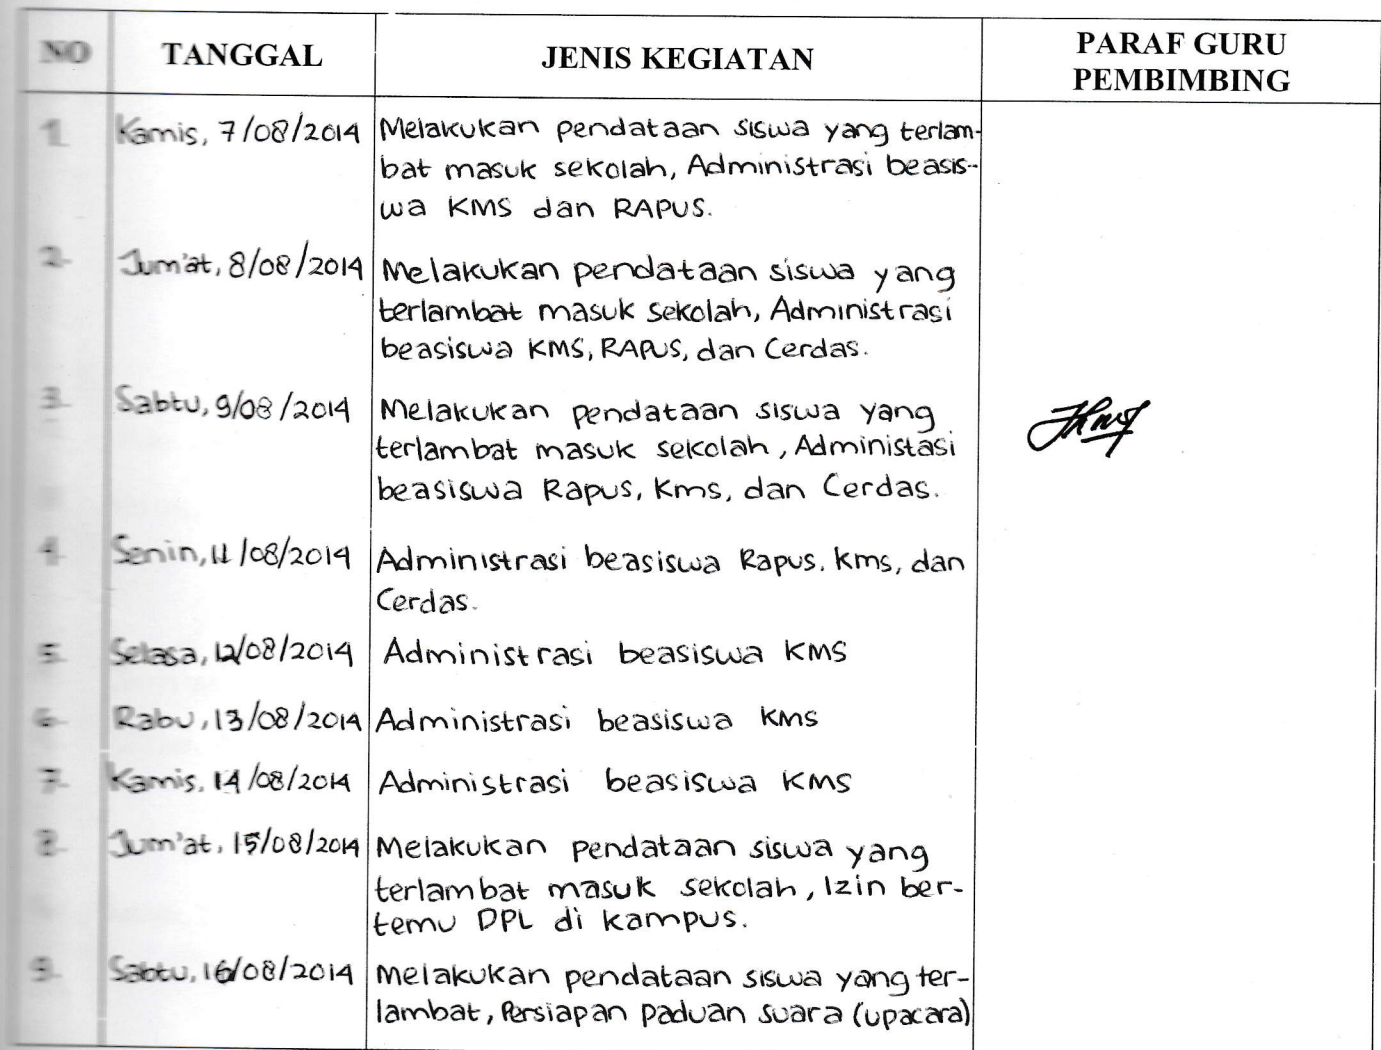 NO TANGGAL JENIS KEGIATAN PARAF GURU
PEMBIMBING
1. Kamis, 7/08/2014 Melakukan pendataan siswa yang terlam-
bat masuk sekolah, Administrasi beasis-
wa KMS dan RAPUS.
2. Jum'at, 8/08/2014 Melakukan pendataan siswa yang
terlambat masuk sekolah, Administrasi
beasiswa KMS, RAPUS, dan Cerdas.
3. Sabtu, 9/08/2014 Melakukan pendataan siswa yang
terlambat masuk sekolah, Administasi
beasiswa Rapus, Kms, dan Cerdas.
4. Senin, 11/08/2014 Administrasi beasiswa Rapus, Kms, dan
Cerdas.
5. Selasa, 12/08/2014 Administrasi beasiswa KMS
6. Rabu, 13/08/2014 Administrasi beasiswa KMS
7. Kamis, 14/08/2014 Administrasi beasiswa KMS
8. Jum'at, 15/08/2014 Melakukan pendataan siswa yang
terlambat masuk sekolah, Izin ber-
temu DPL di kampus.
9. Sabtu, 16/08/2014 Melakukan pendataan siswa yang ter-
lambat, Persiapan paduan suara (upacara)